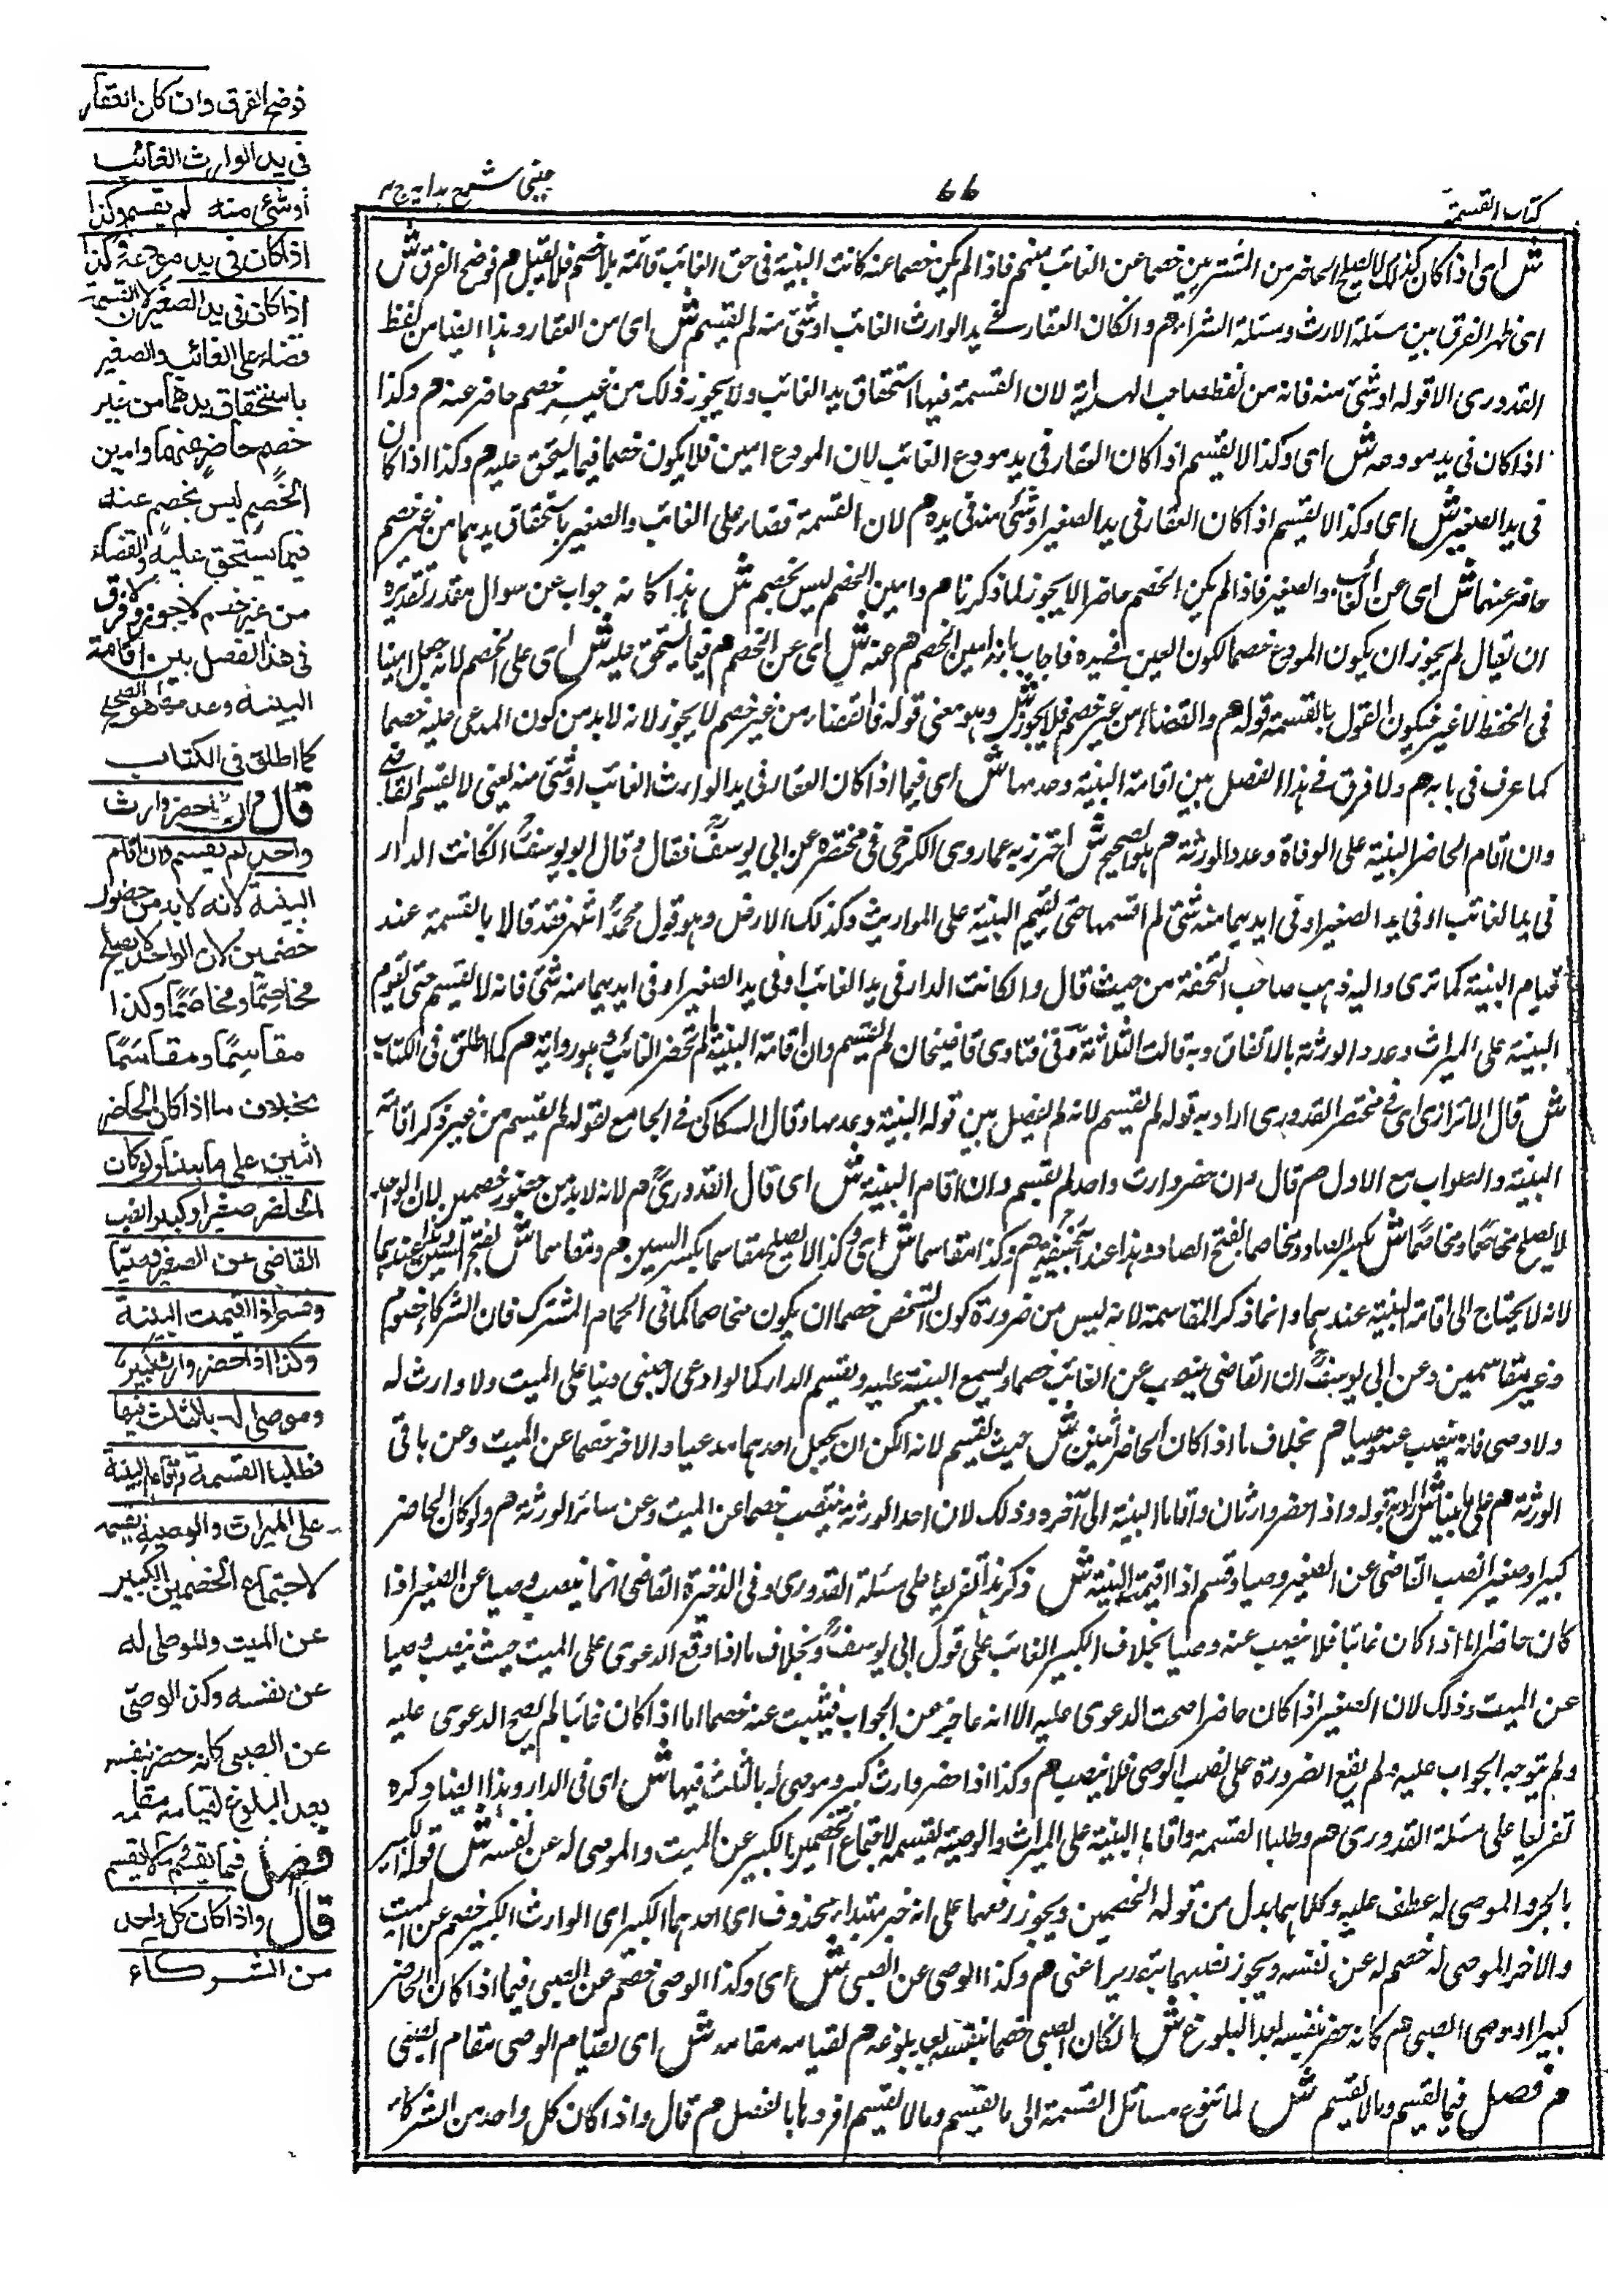 كتاب القسمة
٦٦
عينى شرح هداية ج ٣
ش اى اذا كان كذلك لا يصلح الحاضر من المشتريين خصما عن الغائب منهم فاذا لم يكن خصما عنه كانت البينة فى حق الغائب قائمة بلا خصم فلا تقبل م فوضح الفرق ش
اى ظهر الفرق بين مسئلة الارث ومسئلة الشراء م وان كان العقار فى يد الوارث الغائب او شئ منه لم يقسم ش اى من العقار وهذا ايضا من لفظ
القدورى الا قوله او شئ منه فانه من لفظ صاحب الهداية لان القسمة فيها استحقاق يد الغائب ولا يجوز ذلك من غير خصم حاضر عنه م وكذا
اذا كان فى يد مودعه ش اى وكذا لا يقسم اذا كان العقار فى يد مودع الغائب لان المودع امين فلا يكون خصما فيما يستحق عليه م وكذا اذا كان
فى يد الصغير ش اى وكذا لا يقسم اذا كان العقار فى يد الصغير او شئ منه فى يده م لان القسمة قضاء على الغائب والصغير باستحقاق يدهما من غير خصم
حاضر عنهما ش اى عن الغائب والصغير فاذا لم يكن الخصم حاضرا لا يجوز لما ذكرنا م وامين الخصم ليس بخصم ش هذا كانه جواب عن سوال مقدر تقديره
ان يقال لم يجوز ان يكون المودع خصما لكون العين فى يده فاجاب بانه امين الخصم م عنه ش اى عن الخصم م فيما يستحق عليه ش اى على الخصم لانه جعل امينا
فى الحفظ لا غير فيكون القول بالقسمة قوله م والقضاء من غير خصم فلا يجوز ش وهو معنى قوله فالقضاء من غير خصم لا يجوز لانه لا بد من كون المدعى عليه خصما
كما عرف فى بابه م ولا فرق فى هذا الفصل بين اقامة البينة وعدمها ش اى فيما اذا كان العقار فى يد الوارث الغائب او شئ منه يعنى لا يقسم القاضى
وان اقام الحاضر البينة على الوفاة وعدد الورثة م هو الصحيح ش احترز به عما روى الكرخى فى مختصره عن ابى يوسف فقال وقال ابو يوسف ان كانت الدار
فى يد الغائب او فى يد الصغير او فى ايديهما منه شئ لم اقسمها حتى تقيم البينة على المواريث وكذلك الارض وهو قول محمد اشهر فقد قالا بالقسمة عند
قيام البينة كما ترى واليه ذهب صاحب التحفة من حيث قال وان كانت الدار فى يد الغائب او فى يد الصغير او فى ايديهما منه شئ فانه لا يقسم حتى تقوم
البينة على الميراث وعدد الورثة بالاتفاق وبه قالت الثلاثة وفى فتاوى قاضيخان لم يقسم وان اقامة البينة لم تحضر الغائب وهو رواية م كما اطلق فى الكتاب
ش قال الاترازى اى فى مختصر القدورى اراد به قوله لم يقسم لانه لم يفصل بين قوله البينة وعدمها وقال السكاكى فى الجامع بقوله لم يقسم من غير ذكر اقامة
البينة والصواب مع الاول م قال وان حضر وارث واحد لم يقسم وان اقام البينة ش اى قال القدورى م لانه لا بد من حضور خصمين لان الواحد
لا يصلح مخاصما ومخاصما ش بكسر الصاد ومخاصما بفتح الصاد وهذا عند ابى حنيفة م وكذا مقاسما ش اى وكذا لا يصلح مقاسما بكسر السين م ومقاسما ش بفتح السين وهذا عندهما
لانه لا يحتاج الى اقامة البينة عندهما وانما ذكر المقاسمة لانه ليس من ضرورة كون الشخص خصما ان يكون مخاصما كما فى الحمام المشترك فان الشركاء خصوم
وغير مقاسمين وعن ابى يوسف ان القاضى ينصب عن الغائب خصما ويسمع البينة عليه ويقسم الدار كما لو ادعى اجنبى دينا على الميت ولا وارث له
ولا وصى فانه ينصب عنه وصيا م بخلاف ما اذا كان الحاضر اثنين ش حيث يقسم لانه امكن ان يجعل احدهما مدعيا والاخر خصما عن الميت وعن باقى
الورثة م على ما بينا ش اراد به قوله واذا حضر وارثان واقاما البينة الى آخره وذلك لان احد الورثة ينتصب خصما عن الميت وعن سائر الورثة م ولو كان الحاضر
كبيرا وصغيرا نصب القاضى عن الصغير وصيا وقسم اذا اقيمت البينة ش ذكر هذا تفريعا على مسئلة القدورى وفى الذخيرة القاضى انما ينصب وصيا عن الصغير اذا
كان حاضرا اما اذا كان غائبا فلا ينصب عنه وصيا بخلاف الكبير الغائب على قول ابى يوسف وبخلاف ما اذا وقع الدعوى على الميت حيث ينصب وصيا
عن الميت وذلك لان الصغير اذا كان حاضرا صحت الدعوى عليه الا انه عاجز عن الجواب فينصب عنه خصما اما اذا كان غائبا لم يصح الدعوى عليه
ولم يتوجه الجواب عليه ولم يقع الضرورة على نصب الوصى فلا ينصب م وكذا اذا حضر وارث كبير وموصى له بالثلث فيها ش اى فى الدار وهذا ايضا ذكره
تفريعا على مسئلة القدورى م وطلبا القسمة واقاما البينة على الميراث والوصية يقسمه لاجتماع الخصمين الكبير عن الميت والموصى له عن نفسه ش قوله الكبير
بالجر والموصى له عطف عليه وكلاهما بدل من قوله الخصمين ويجوز رفعهما على انه خبر مبتداء محذوف اى احدهما الكبير اى الوارث الكبير خصم عن الميت
والاخر الموصى له خصم له عن نفسه ويجوز نصبهما بتقدير اعنى م وكذا الوصى عن الصبى ش اى وكذا الوصى خصم عن الصبى فيما اذا كان الحاضر
كبيرا ووصى الصبى م كانه حضر بنفسه بعد البلوغ ش اى كان الصبى خصما بنفسه بعد بلوغه م لقيامه مقامه ش اى لقيام الوصى مقام الصبى
م فصل فيما يقسم وما لا يقسم ش لما تنوع مسائل القسمة الى ما يقسم وما لا يقسم افردها بالفصل م قال واذا كان كل واحد من الشركاء
فوضح الفرق وان كان العقار
فى يد الوارث الغائب
او شئ منه لم يقسم وكذا
اذا كان فى يد مودعه وكذا
اذا كان فى يد الصغير لان القسمة
قضاء على الغائب والصغير
باستحقاق يدهما من غير
خصم حاضر عنهما وامين
الخصم ليس بخصم عنه
فيما يستحق عليه والقضاء
من غير خصم لا يجوز ولا فرق
فى هذا الفصل بين اقامة
البينة وعدمها هو الصحيح
كما اطلق فى الكتاب
قال وان حضر وارث
واحد لم يقسم وان اقام
البينة لانه لا بد من حضور
خصمين لان الواحد لا يصلح
مخاصما ومخاصما وكذا
مقاسما ومقاسما
بخلاف ما اذا كان الحاضر
اثنين على ما بينا ولو كان
الحاضر صغيرا وكبيرا نصب
القاضى عن الصغير وصيا
وقسم اذا اقيمت البينة
وكذا اذا حضر وارث كبير
وموصى له بالثلث فيها
فطلبا القسمة واقاما البينة
على الميراث والوصية يقسمه
لاجتماع الخصمين الكبير
عن الميت والموصى له
عن نفسه وكذا الوصى
عن الصبى كانه حضر بنفسه
بعد البلوغ لقيامه مقامه
فصل فيما يقسم وما لا يقسم
قال واذا كان كل واحد
من الشركاء